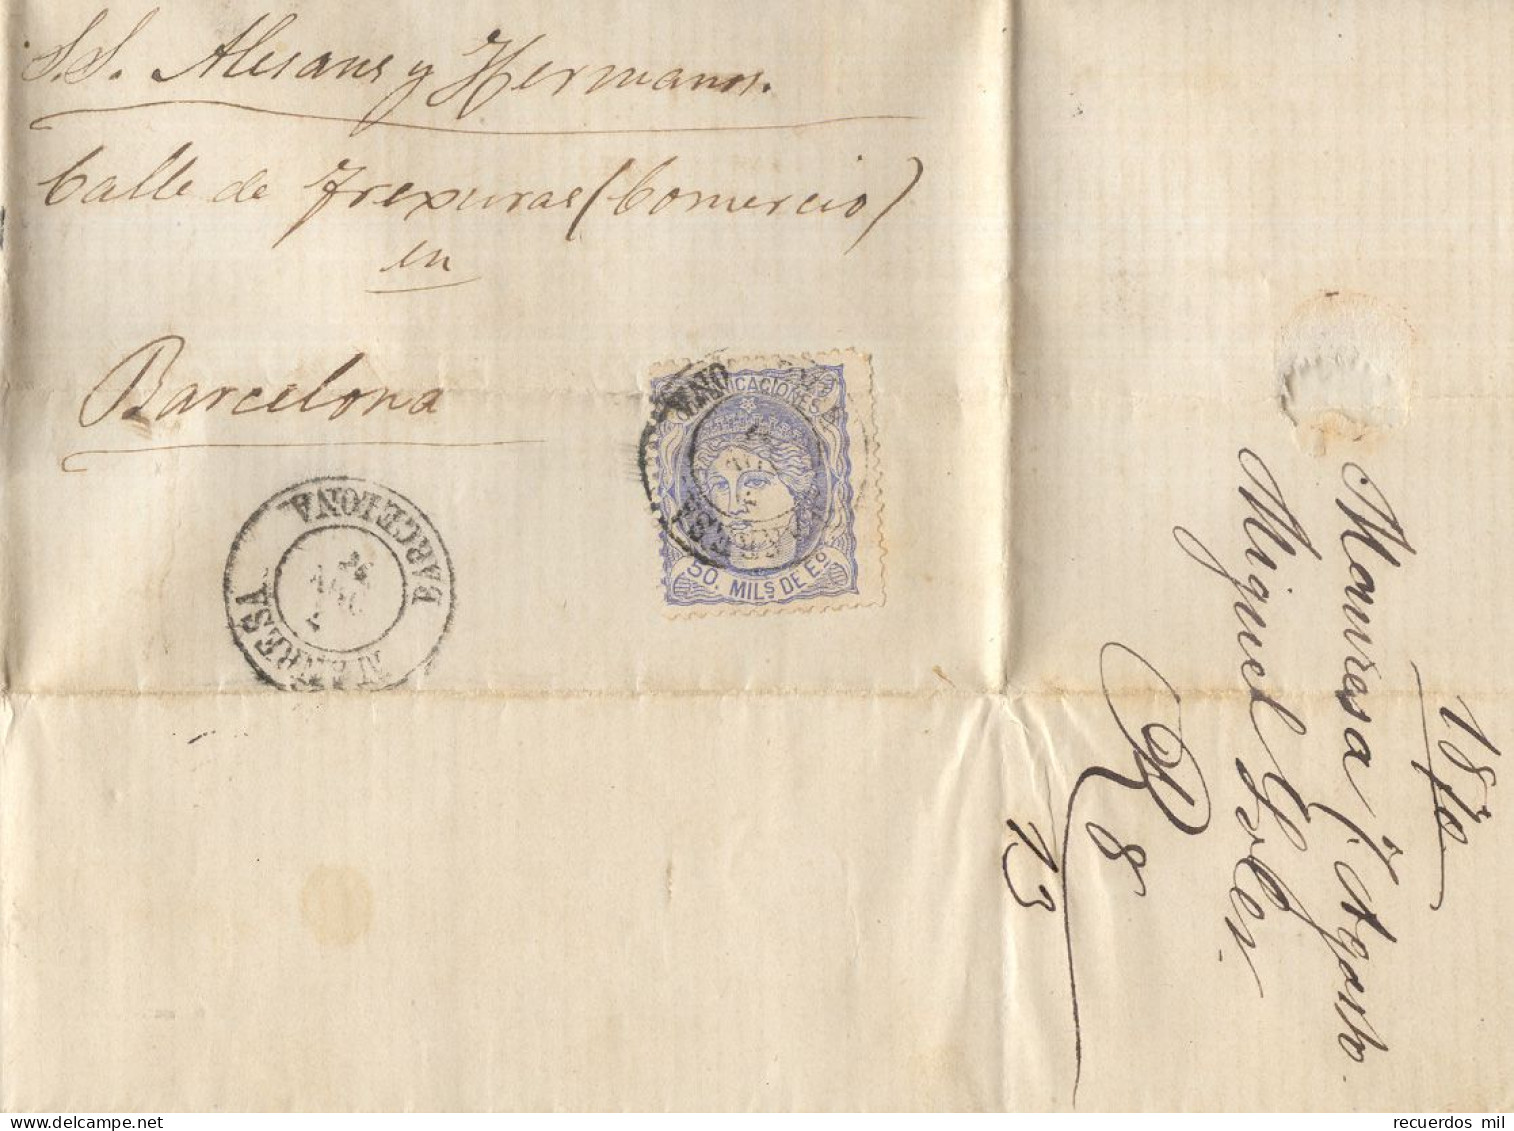 S.S. Alesans y Hermanos.
Calle de Frexuras (Comercio)
en
Barcelona
COMUNICACIONES
50. MILS DE Eº
MANRESA
BARCELONA
1870
Manresa 1º Agosto
Miguel Soler.
R 8
13
delcampe.net
recuerdos mil